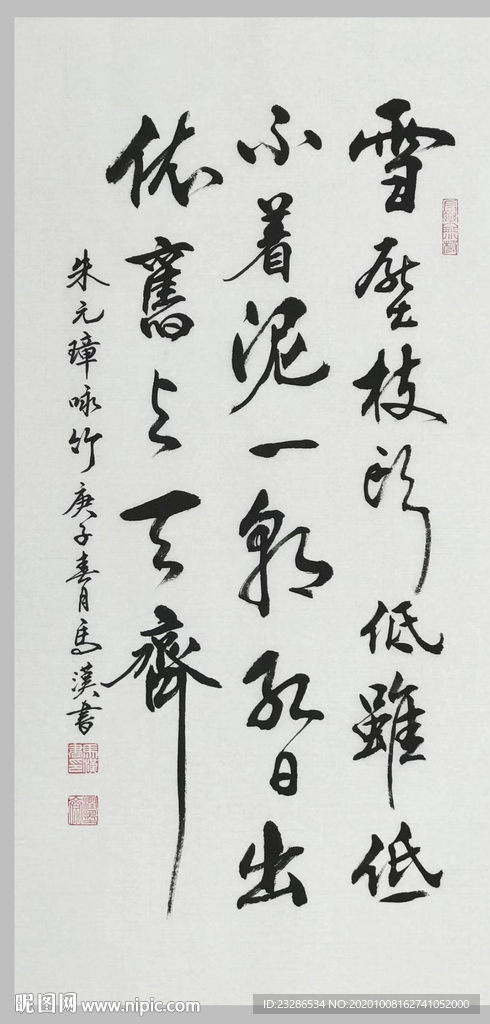 雪壓枝頭低雖低
不着泥一朝紅日出
依舊与天齊
朱元璋咏竹庚子春月馬漢書
昵图网 www.nipic.com
ID:23286534 NO:20201008162741052000